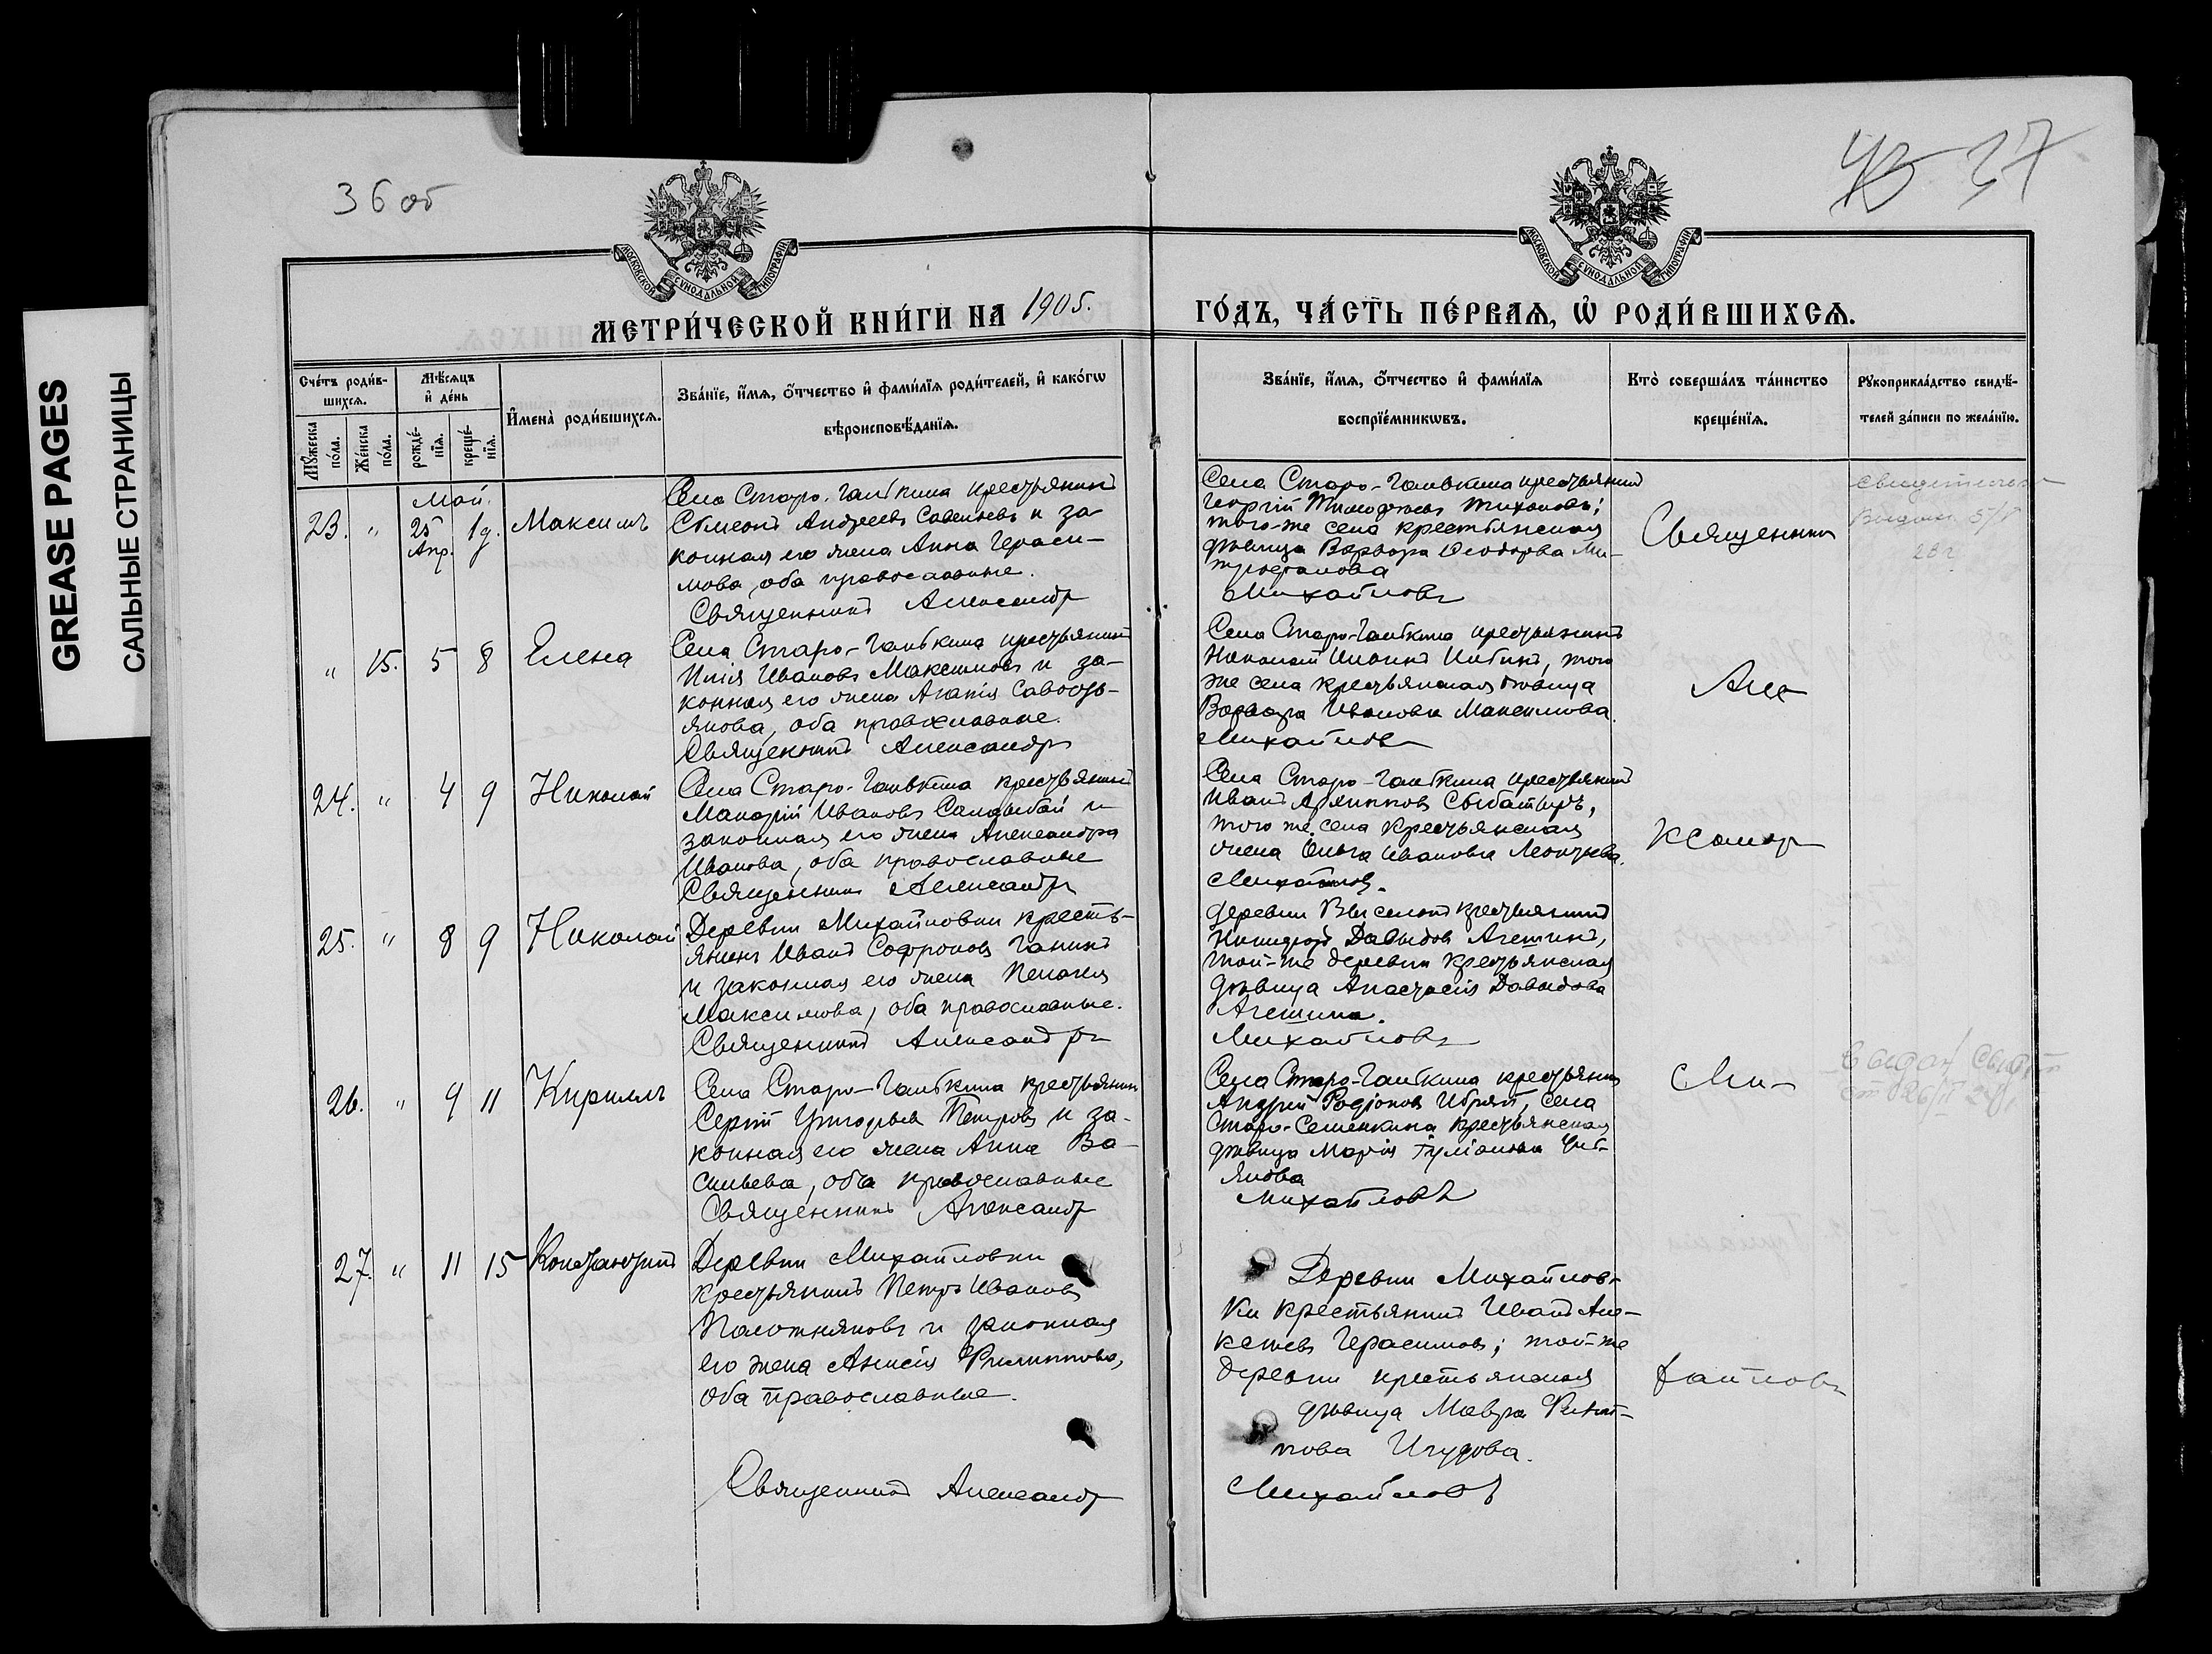 GREASE PAGES
САЛЬНЫЕ СТРАНИЦЫ
36 об
37
МОСКОВСКОЙ СѴНОДАЛЬНОЙ ТИПОГРАФІИ
МОСКОВСКОЙ СѴНОДАЛЬНОЙ ТИПОГРАФІИ
МЕТРИ́ЧЕСКОЙ КНИ́ГИ НА 1905.
ГО́ДЪ, ЧА́СТЬ ПЕ́РВАѦ, Ѡ҆ РОДИ́ВШИХСѦ.
Сче́тъ роди́в-
шихсѧ.
Мꙋ́жеска по́ла.
Же́нска по́ла.
Мѣ́сѧцъ и҆ де́нь
рожде́-
нїѧ.
креще́-
нїѧ.
И҆мена̀ роди́вшихсѧ.
Зва́нїе, и҆́мѧ, ѻ҆́тчество и҆ фами́лїѧ роди́телей, и҆ како́гѡ
вѣроисповѣ́данїѧ.
Зва́нїе, и҆́мѧ, ѻ҆́тчество и҆ фами́лїѧ
воспрїе́мникѡвъ.
Кто̀ соверша́лъ та́инство
креще́нїѧ.
Рꙋкоприкла́дство свидѣ́-
телей за́писи по жела́нїю.
Май.
23. " 25 Апр. 1 Максимъ
Села Старо-Ганькина крестьянинъ
Сѵмеонъ Андреевъ Савельевъ и за-
конная его жена Анна Гераси-
мова, оба православные.
Священникъ Александръ
Села Старо-Ганькина крестьянинъ
Георгій Тимофеевъ Тихоновъ;
того-же села крестьянская
дѣвица Варвара Ѳеодорова Ми-
трофанова
Михайловъ
Священникъ
" 15. 5 8 Елена
Села Старо-Ганькина крестьянинъ
Илія Ивановъ Максимовъ и за-
конная его жена Агапія Савость-
янова, оба православные.
Священникъ Александръ
Села Старо-Ганькина крестьянинъ
Николай того
же села крестьянская дѣвица
Варвара Иванова Максимова.
Михайловъ
Але-
24. " 4 9 Николай
Села Старо-Ганькина крестьянинъ
Макарій Ивановъ и
законная его жена Александра
Иванова, оба православные
Священникъ Александръ
Села Старо-Ганькина крестьянинъ
Иванъ
того же села крестьянская
жена Ольга Иванова Леонтьева.
Михайловъ.
ксандръ
25. " 8 9 Николай
Деревни Михайловки кресть-
янинъ Иванъ Софроновъ Ганинъ
и законная его жена Пелагея
Максимова, оба православные.
Священникъ Александръ
деревни крестьянинъ
Никифоръ Давыдовъ Агешинъ,
той-же деревни крестьянская
дѣвица Анастасія Давыдова
Агешина.
Михайловъ
26. " 9 11 Кириллъ
Села Старо-Ганькина крестьянинъ
Сергій Григорьевъ Петровъ и за-
конная его жена Анна Ва-
сильева, оба православные
Священникъ Александръ
Села Старо-Ганькина крестьянинъ
Андрей Родіоновъ села
Старо-Семенкина крестьянская
дѣвица Марія
Михайловъ
Ми-
27. " 11 15 Константинъ
Деревни Михайловки
крестьянинъ Петръ Ивановъ
Полотняновъ и законная
его жена Анисія Филиппова,
оба православные.
Священникъ Александръ
Деревни Михайлов-
ки крестьянинъ Иванъ Але-
ксѣевъ Герасимовъ; той-же
деревни крестьянская
дѣвица Мавра Филип-
пова
Михайловъ
хайловъ